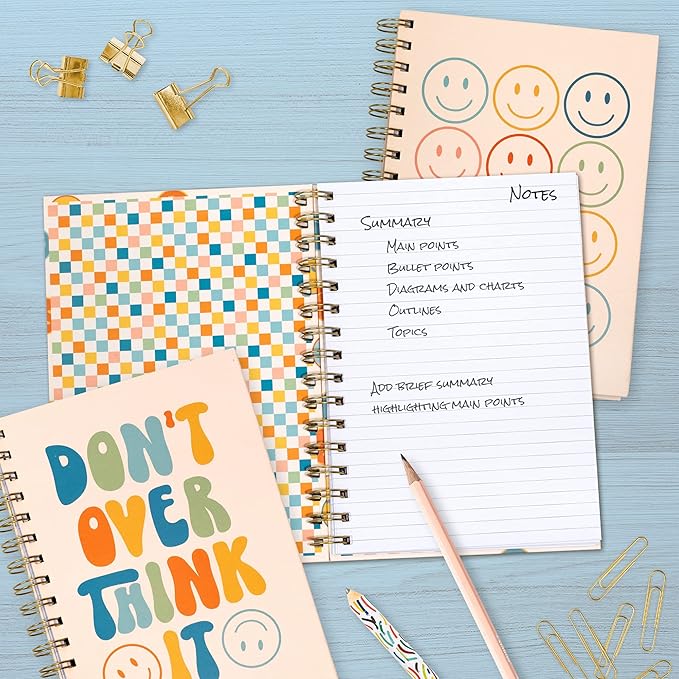 Notes
Summary
Main points
Bullet points
Diagrams and charts
Outlines
Topics
Add brief summary
highlighting main points
DON'T
OVER
THINK
IT